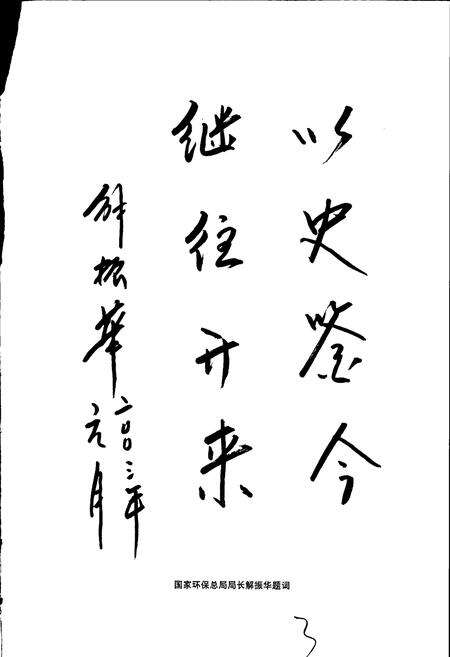 以史鉴今
继往开来
解振華
二〇〇三年
元月
国家环保总局局长解振华题词
3